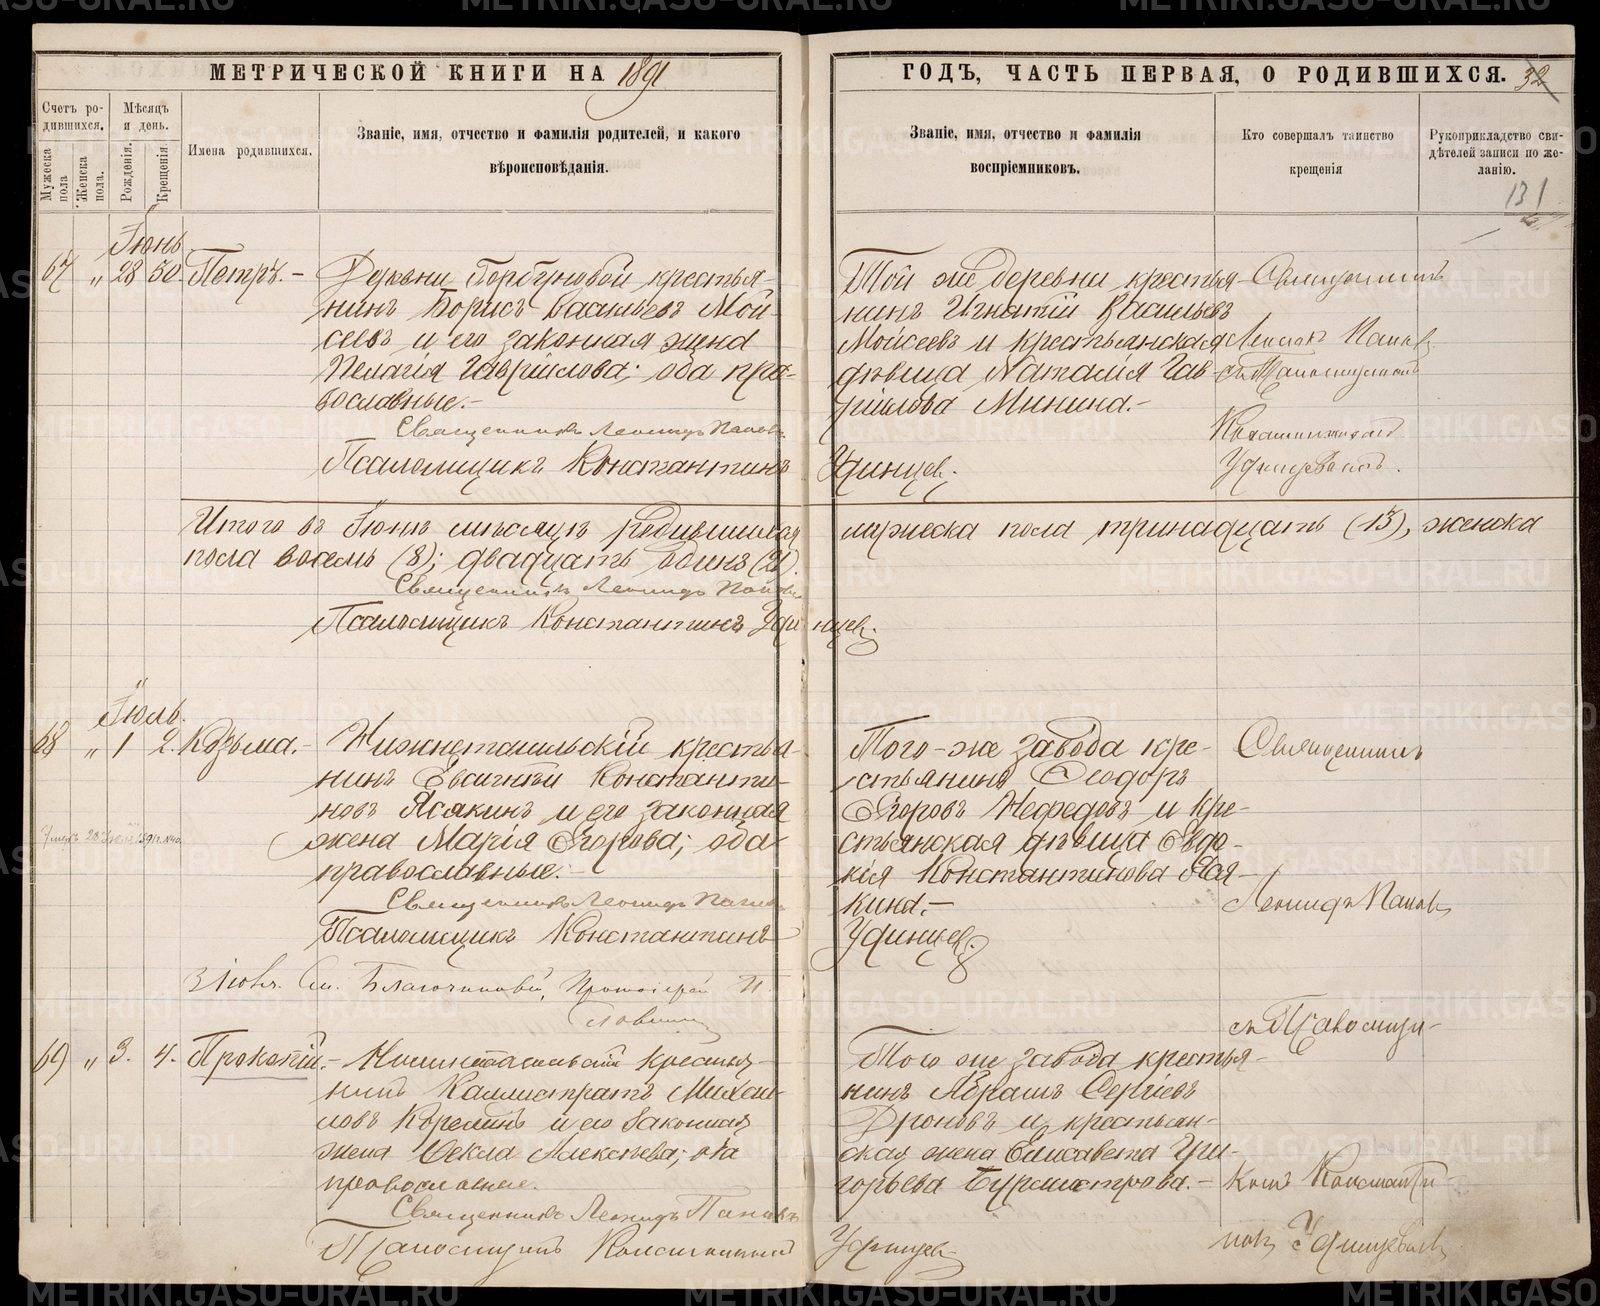 МЕТРИЧЕСКОЙ КНИГИ НА 1891
ГОДЪ, ЧАСТЬ ПЕРВАЯ, О РОДИВШИХСЯ. 32
Счетъ ро-
дившихся.
Мужеска пола
Женска пола.
Мѣсяцъ
и день.
Рожденія.
Крещенія
Имена родившихся.
Званіе, имя, отчество и фамилія родителей, и какого
вѣроисповѣданія.
Званіе, имя, отчество и фамилія
воспріемниковъ.
Кто совершалъ таинство
крещенія
Рукоприкладство сви-
дѣтелей записи по же-
ланію.
131
Іюнь
67 „ 28 30. Петръ. – Деревни Горбуновой крестья-
нинъ Борисъ Васильевъ Мой-
сеевъ и его законная жена
Пелагія Гаврiилова; оба пра-
вославные. –
Священникъ Леонидъ Поповъ
Псаломщикъ Константинъ Удинцев.
Той же деревни крестья-
нинъ Игнатій Васильевъ
Мойсеевъ и крестьянская
дѣвица Наталія Гав-
рiилова Минина. –
Священникъ
Леонидъ Поповъ
съ Псаломщикомъ
Константиномъ
Удинцевымъ.
Итого въ Іюнѣ мѣсяцѣ родившихся мужеска пола тринадцать (13), женска
пола восемь (8); двадцать одинъ (21).
Священникъ Леонидъ Поповъ
Псаломщикъ Константинъ Удинцев.
Іюль.
68 „ 1 2. Козьма. – Нижнетагильскій крестья-
нинъ Евсигній Константи-
новъ Ясякинъ и его законная
жена Марія Егорова; оба
православные. –
Священникъ Леонидъ Поповъ
Псаломщикъ Константинъ Удинцев.
Того-же завода кре-
стьянинъ Ѳеодоръ
Егоровъ Нефедовъ и кре-
стьянская дѣвица Евдо-
кія Константинова Яся-
кина. –
Священникъ
Леонидъ Поповъ
Благочинный, Протоіерей
69 „ 3. 4. Прокопій. – Нижнетагильскій крестья-
нинъ Каллистратъ Михаи-
ловъ Корелинъ и его законная
жена Ѳекла Алексѣева; оба
православные.
Священникъ Леонидъ Поповъ
Псаломщикъ Константинъ Удинцев
Того же завода крестья-
нинъ Абрамъ Сергіевъ
Дроновъ и крестьян-
ская жена Елисавета Гри-
горьева Бурмистрова. –
съ Псаломщи-
комъ Константи-
номъ Удинцевымъ